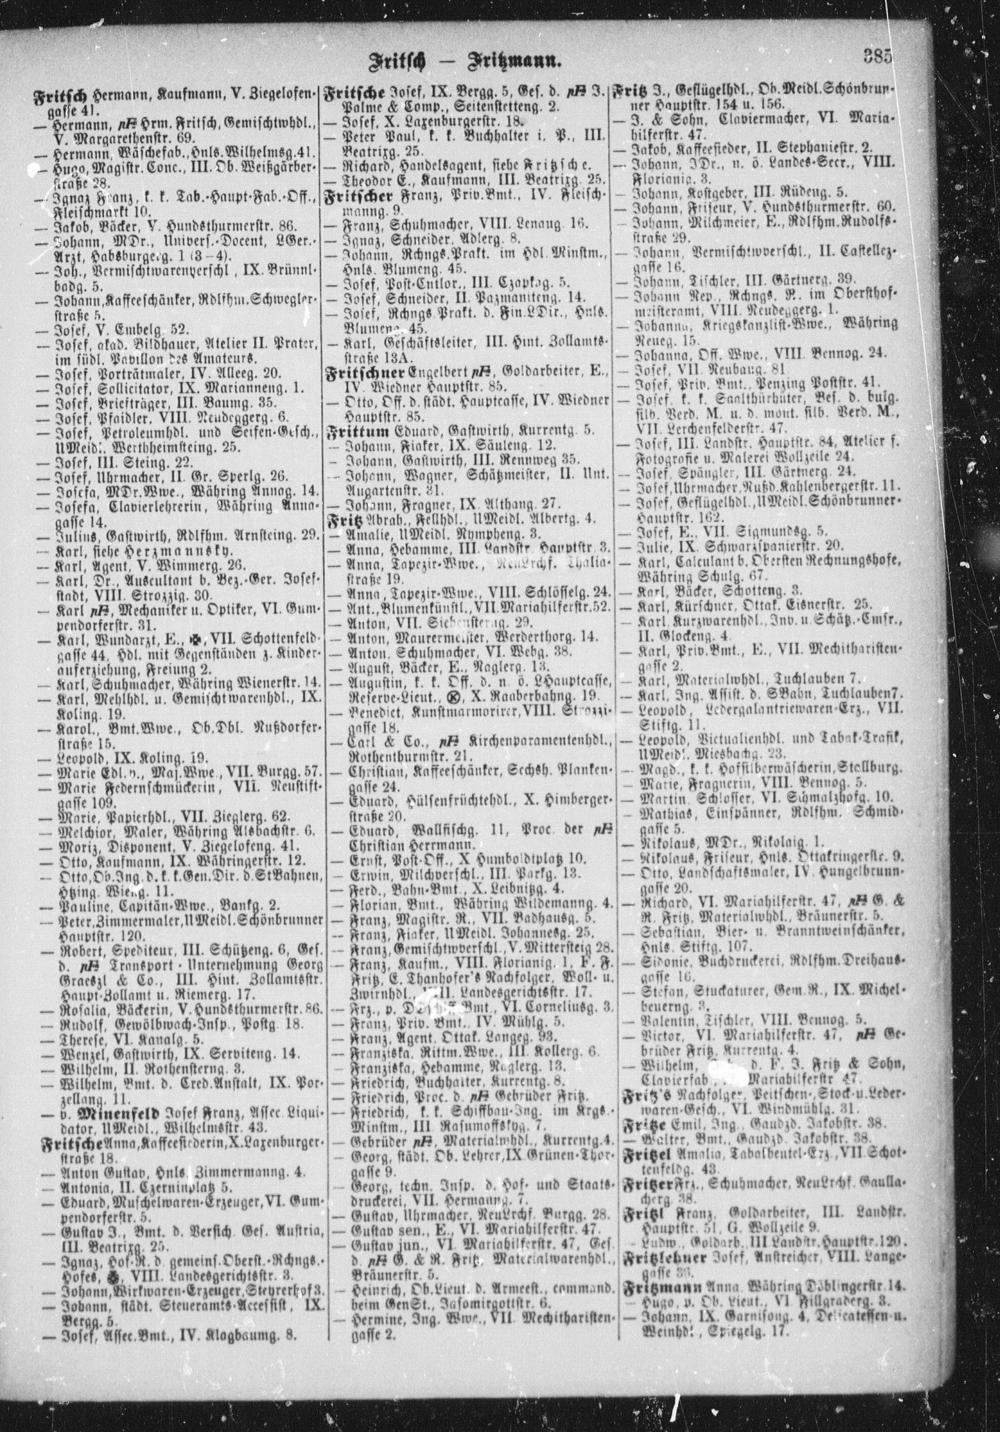 Fritsch — Fritzmann.
385
Fritsch Hermann, Kaufmann, V. Ziegelofen-
gasse 41.
— Hermann, Hrm. Fritsch, Gemischtwhdl.,
V. Margarethenstr. 69.
— Hermann, Wäschefab., Hnls. Wilhelmsg. 41.
— Hugo, Magistr. Conc., III. Ob. Weißgärber-
straße 28.
— Ignaz Franz, k. k. Tab.-Haupt-Fab.-Off.,
Fleischmarkt 10.
— Jakob, Bäcker, V. Hundsthurmerstr. 86.
— Johann, MDr., Univers.-Docent, LGer.-
Arzt, Habsburgerg. 1 (3—4).
— Joh., Vermischtwarenverschl., IX. Brünnl-
badg. 5.
— Johann, Kaffeeschänker, Rdlfhm. Schwegler-
straße 5.
— Josef, V. Embelg. 52.
— Josef, akad. Bildhauer, Atelier II. Prater,
im südl. Pavillon des Amateurs.
— Josef, Porträtmaler, IV. Alleeg. 20.
— Josef, Sollicitator, IX. Marianneng. 1.
— Josef, Briefträger, III. Baumg. 35.
— Josef, Pfaidler, VIII. Neudeggerg. 6.
— Josef, Petroleumhdl. und Seifen-Gesch.,
UMeidl. Werthheimsteing. 25.
— Josef, III. Steing. 22.
— Josef, Uhrmacher, II. Gr. Sperlg. 26.
— Josefa, MDr. Wwe., Währing Annag. 14.
— Josefa, Clavierlehrerin, Währing Anna-
gasse 14.
— Julius, Gastwirth, Rdlfhm. Arnsteing. 29.
— Karl, siehe Herzmannsky.
— Karl, Agent, V. Wimmerg. 26.
— Karl, Dr., Auscultant b. Bez.-Ger. Josef-
stadt, VIII. Strozzig. 30.
— Karl, Mechaniker u. Optiker, VI. Gum-
pendorferstr. 31.
— Karl, Wundarzt, E., VII. Schottenfeld-
gasse 44, Hdl. mit Gegenständen z. Kinder-
auferziehung, Freiung 2.
— Karl, Schuhmacher, Währing Wienerstr. 14.
— Karl, Mehlhdl. u. Gemischtwarenhdl., IX.
Koling. 19.
— Karol., Bmt. Wwe., Ob. Dbl. Nußdorfer-
straße 15.
— Leopold, IX. Koling. 19.
— Marie Edl. v., Maj. Wwe., VII. Burgg. 57.
— Marie Federnschmückerin, VII. Neustift-
gasse 109.
— Marie, Papierhdl., VII. Zieglerg. 62.
— Melchior, Maler, Währing Alsbachstr. 6.
— Moriz, Disponent, V. Ziegelofeng. 41.
— Otto, Kaufmann, IX. Währingerstr. 12.
— Otto, Ob. Ing. d. k. k. Gen. Dir. d. StBahnen,
Htzing. Wieng. 11.
— Pauline, Capitän-Wwe., Bankg. 2.
— Peter, Zimmermaler, UMeidl. Schönbrunner
Hauptstr. 120.
— Robert, Spediteur, III. Schützeng. 6, Ges.
d. Transport-Unternehmung Georg
Graeszl & Co., III. Hint. Zollamtsstr.
Haupt-Zollamt u. Riemerg. 17.
— Rosalia, Bäckerin, V. Hundsthurmerstr. 86.
— Rudolf, Gewölbwach-Insp., Postg. 18.
— Therese, VI. Kanalg. 5.
— Wenzel, Gastwirth, IX. Serviteng. 14.
— Wilhelm, II. Rothensterng. 3.
— Wilhelm, Bmt. d. Cred. Anstalt, IX. Por-
zellang. 11.
— v. Minenfeld Josef Franz, Assec. Liqui-
dator, UMeidl., Wilhelmstr. 43.
Fritsche Anna, Kaffeesiederin, X. Laxenburger-
straße 18.
— Anton Gustav, Hnls. Zimmermanng. 4.
— Antonia, II. Czerninplatz 5.
— Eduard, Muschelwaren-Erzeuger, VI. Gum-
pendorferstr. 5.
— Gustav J., Bmt. d. Versich. Ges. Austria,
III. Beatrixg. 25.
— Ignaz, Hof-R. d. gemeins. Oberst.-Rchngs.-
Hofes, VIII. Landesgerichtsstr. 3.
— Johann, Wirkwaren-Erzeuger, Steyrerhof 3.
— Johann, städt. Steueramts-Accessist, IX.
Bergg. 5.
— Josef, Assec. Bmt., IV. Klagbaumg. 8.
Fritsche Josef, IX. Bergg. 5, Ges. d. J.
Palme & Comp., Seitenstetteng. 2.
— Josef, X. Laxenburgerstr. 18.
— Peter Paul, k. k. Buchhalter i. P., III.
Beatrixg. 25.
— Richard, Handelsagent, siehe Fritzsche.
— Theodor E., Kaufmann, III. Beatrixg. 25.
Fritscher Franz, Priv. Bmt., IV. Fleisch-
manng. 9.
— Franz, Schuhmacher, VIII. Lenaug. 16.
— Ignaz, Schneider, Adlerg. 8.
— Johann, Rchngs. Prakt. im Hdl. Minstm.,
Hnls. Blumeng. 45.
— Josef, Post-Cnilor., III. Czapkag. 5.
— Josef, Schneider, II. Pazmaniteng. 14.
— Josef, Rchngs. Prakt. d. Fin. LDir., Hnls.
Blumeng. 45.
— Karl, Geschäftsleiter, III. Hint. Zollamts-
straße 13A.
Fritschner Engelbert, Goldarbeiter, E.,
IV. Wiedner Hauptstr. 85.
— Otto, Off. d. städt. Hauptcasse, IV. Wiedner
Hauptstr. 85.
Frittum Eduard, Gastwirth, Kurrentg. 5.
— Johann, Fiaker, IX. Säuleng. 12.
— Johann, Gastwirth, III. Rennweg 35.
— Johann, Wagner, Schätzmeister, II. Unt.
Augartenstr. 31.
— Johann, Fragner, IX. Althang. 27.
Fritz Abrah., Fellhdl., UMeidl. Albertg. 4.
— Amalie, UMeidl. Nympheng. 3.
— Anna, Hebamme, III. Landstr. Hauptstr. 3.
— Anna, Tapezir-Wwe., NeuLrchf. Thalia-
straße 19.
— Anna, Tapezir-Wwe., VIII. Schlösselg. 24.
— Ant., Blumenkünstl., VII. Mariahilferstr. 52.
— Anton, VII. Siebensterng. 29.
— Anton, Maurermeister, Werderthorg. 14.
— Anton, Schuhmacher, VI. Webg. 38.
— August, Bäcker, E., Naglerg. 13.
— Augustin, k. k. Off. d. n. ö. LHauptcasse,
Reserve-Lieut., X. Raaberbahng. 19.
— Benedict, Kunstmarmorirer, VIII. Strozzi-
gasse 18.
— Carl & Co., Kirchenparamentenhdl.,
Rothenthurmstr. 21.
— Christian, Kaffeeschänker, Sechsh. Planken-
gasse 24.
— Eduard, Hülsenfrüchtehdl., X. Himberger-
straße 20.
— Eduard, Wallfischg. 11, Proc. der
Christian Herrmann.
— Ernst, Post-Off., X Humboldtplatz 10.
— Erwin, Milchverschl., III. Parkg. 13.
— Ferd., Bahn-Bmt., X. Leibnitzg. 4.
— Florian, Bmt., Währing Wildemanng. 4.
— Franz, Magistr. R., VII. Badhausg. 5.
— Franz, Fiaker, UMeidl. Johannesg. 25.
— Franz, Gemischtwverschl., V. Mittersteig 28.
— Franz, Kaufm., VIII. Florianig. 1, F. F.
Fritz, E. Thanhofer's Nachfolger, Woll- u.
Zwirnhdl., VIII. Landesgerichtsstr. 17.
— Frz., p. Bmt., VI. Corneliusg. 3.
— Franz, Priv. Bmt., IV. Mühlg. 5.
— Franz, Agent, Ottak. Langeg. 93.
— Franziska, Rittm. Wwe., III. Kollerg. 6.
— Franziska, Hebamme, Naglerg. 13.
— Friedrich, Buchhalter, Kurrentg. 8.
— Friedrich, Proc. d. Gebrüder Fritz.
— Friedrich, k. k. Schiffbau-Ing. im Krgs.-
Minstm., III Rasumoffskyg. 7.
— Gebrüder, Materialwhdl., Kurrentg. 4.
— Georg, städt. Ob. Lehrer, IX. Grünen-Thor-
gasse 9.
— Georg, techn. Insp. d. Hof- und Staats-
druckerei, VII. Hermanng. 7.
— Gustav, Uhrmacher, NeuLrchf. Burgg. 28.
— Gustav sen., E., VI. Mariahilferstr. 47.
— Gustav jun., VI. Mariahilferstr. 47, Ges.
d. G. & R. Fritz, Materialwarenhdl.,
Bräunerstr. 5.
— Heinrich, Ob. Lieut. d. Armeest., command.
beim GenSt., Jasomirgottstr. 6.
— Hermine, Ing. Wwe., VII. Mechitharisten-
gasse 2.
Fritz J., Geflügelhdl., Ob. Meidl. Schönbrun-
ner Hauptstr. 154 u. 156.
— J. & Sohn, Claviermacher, VI. Maria-
hilferstr. 47.
— Jakob, Kaffeesieder, II. Stephaniestr. 2.
— Johann, JDr., n. ö. Landes-Secr., VIII.
Florianig. 3.
— Johann, Kostgeber, III. Rüdeng. 5.
— Johann, Friseur, V. Hundsthurmerstr. 60.
— Johann, Milchmeier, E., Rdlfhm. Rudolfs-
straße 29.
— Johann, Vermischtwverschl., II. Castellez-
gasse 16.
— Johann, Tischler, III. Gärtnerg. 39.
— Johann Nep., Rchngs. R. im Obersthof-
meisteramt, VIII. Neudeggerg. 1.
— Johanna, Kriegskanzlist-Wwe., Währing
Neueg. 15.
— Johanna, Off. Wwe., VIII. Bennog. 24.
— Josef, VII. Neubaug. 81.
— Josef, Priv. Bmt., Penzing Poststr. 41.
— Josef, k. k. Saalthürhüter, Bes. d. bulg.
silb. Verd. M. u. d. mont. silb. Verd. M.,
VII. Lerchenfelderstr. 47.
— Josef, III. Landstr. Hauptstr. 84, Atelier f.
Fotografie u. Malerei Wollzeile 24.
— Josef, Spängler, III. Gärtnerg. 24.
— Josef, Uhrmacher, Nußd. Kahlenbergerstr. 11.
— Josef, Geflügelhdl., UMeidl. Schönbrunner-
Hauptstr. 162.
— Josef, E., VII. Sigmundsg. 5.
— Julie, IX. Schwarzspanierstr. 20.
— Karl, Calculant b. Obersten Rechnungshofe,
Währing Schulg. 67.
— Karl, Bäcker, Schotteng. 3.
— Karl, Kürschner, Ottak. Eisnerstr. 25.
— Karl, Kurzwarenhdl., Inv. u. Schätz.-Cmsr.,
II. Glockeng. 4.
— Karl, Priv. Bmt., E., VII. Mechitharisten-
gasse 2.
— Karl, Materialwhdl., Tuchlauben 7.
— Karl, Ing. Assist. d. SBahn, Tuchlauben 7.
— Leopold, Ledergalantriewaren-Erz., VII.
Stiftg. 11.
— Leopold, Victualienhdl. und Tabak-Trafik,
UMeidl. Miesbachg. 23.
— Magd., k. k. Hofsilberwäscherin, Stallburg.
— Marie, Fragnerin, VIII. Bennog. 5.
— Martin, Schlosser, VI. Schmalzhofg. 10.
— Mathias, Einspänner, Rdlfhm. Schmid-
gasse 5.
— Nikolaus, MDr., Nikolaig. 1.
— Nikolaus, Friseur, Hnls. Ottakringerstr. 9.
— Otto, Landschaftsmaler, IV. Hungelbrunn-
gasse 20.
— Richard, VI. Mariahilferstr. 47, G. &
R. Fritz, Materialwhdl., Bräunerstr. 5.
— Sebastian, Bier- u. Branntweinschänker,
Hnls. Stiftg. 107.
— Sidonie, Buchdruckerei, Rdlfhm. Dreihaus-
gasse 16.
— Stefan, Stuckaturer, Gem. R., IX. Michel-
beuerng. 3.
— Valentin, Tischler, VIII. Bennog. 5.
— Victor, VI. Mariahilferstr. 47, Ge-
brüder Fritz, Kurrentg. 4.
— Wilhelm, d. F. J. Fritz & Sohn,
Clavierfab., Mariahilferstr 47.
Fritz's Nachfolger, Peitschen-, Stock- u. Leder-
waren-Gesch., VI. Windmühlg. 31.
Fritze Emil, Ing., Gaudzd. Jakobstr. 38.
— Walter, Bmt., Gaudzd. Jakobstr. 38.
Fritzel Amalia, Tabakbeutel-Erz., VII. Schot-
tenfeldg. 43.
Fritzer Frz., Schuhmacher, NeuLrchf. Gaulla-
cherg. 38.
Fritzl Franz, Goldarbeiter, III. Landstr.
Hauptstr. 51, G. Wollzeile 9.
— Ludw., Goldarb., III Landstr. Hauptstr. 120.
Fritzlehner Josef, Anstreicher, VIII. Lange-
gasse 36.
Fritzmann Anna, Währing Döblingerstr. 14.
— Hugo, p. Ob. Lieut., VI. Fillgraderg. 3.
— Johann, IX. Garnisong. 4, Delicatessen- u.
Weinhdl., Spiegelg. 17.